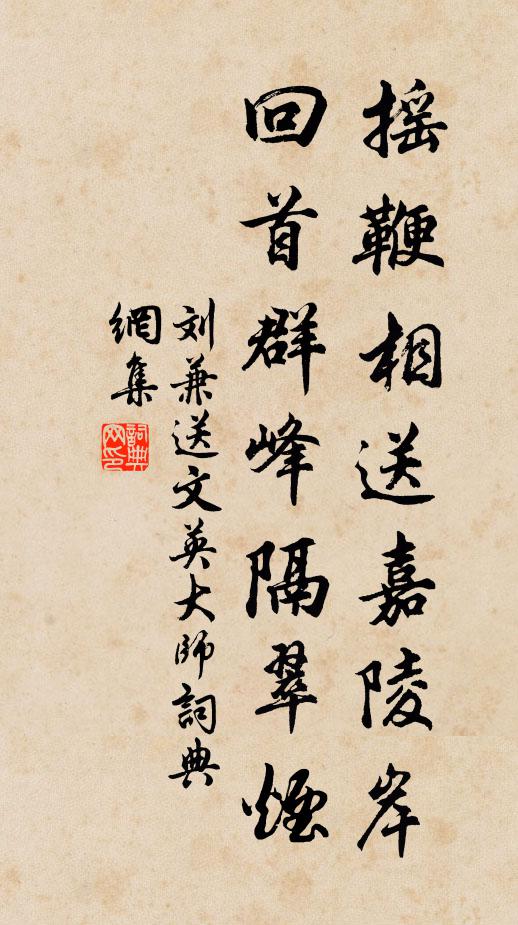 摇鞭相送嘉陵岸
回首群峰隔翠煙
刘兼送文英大师詞典
網集
詞典网印